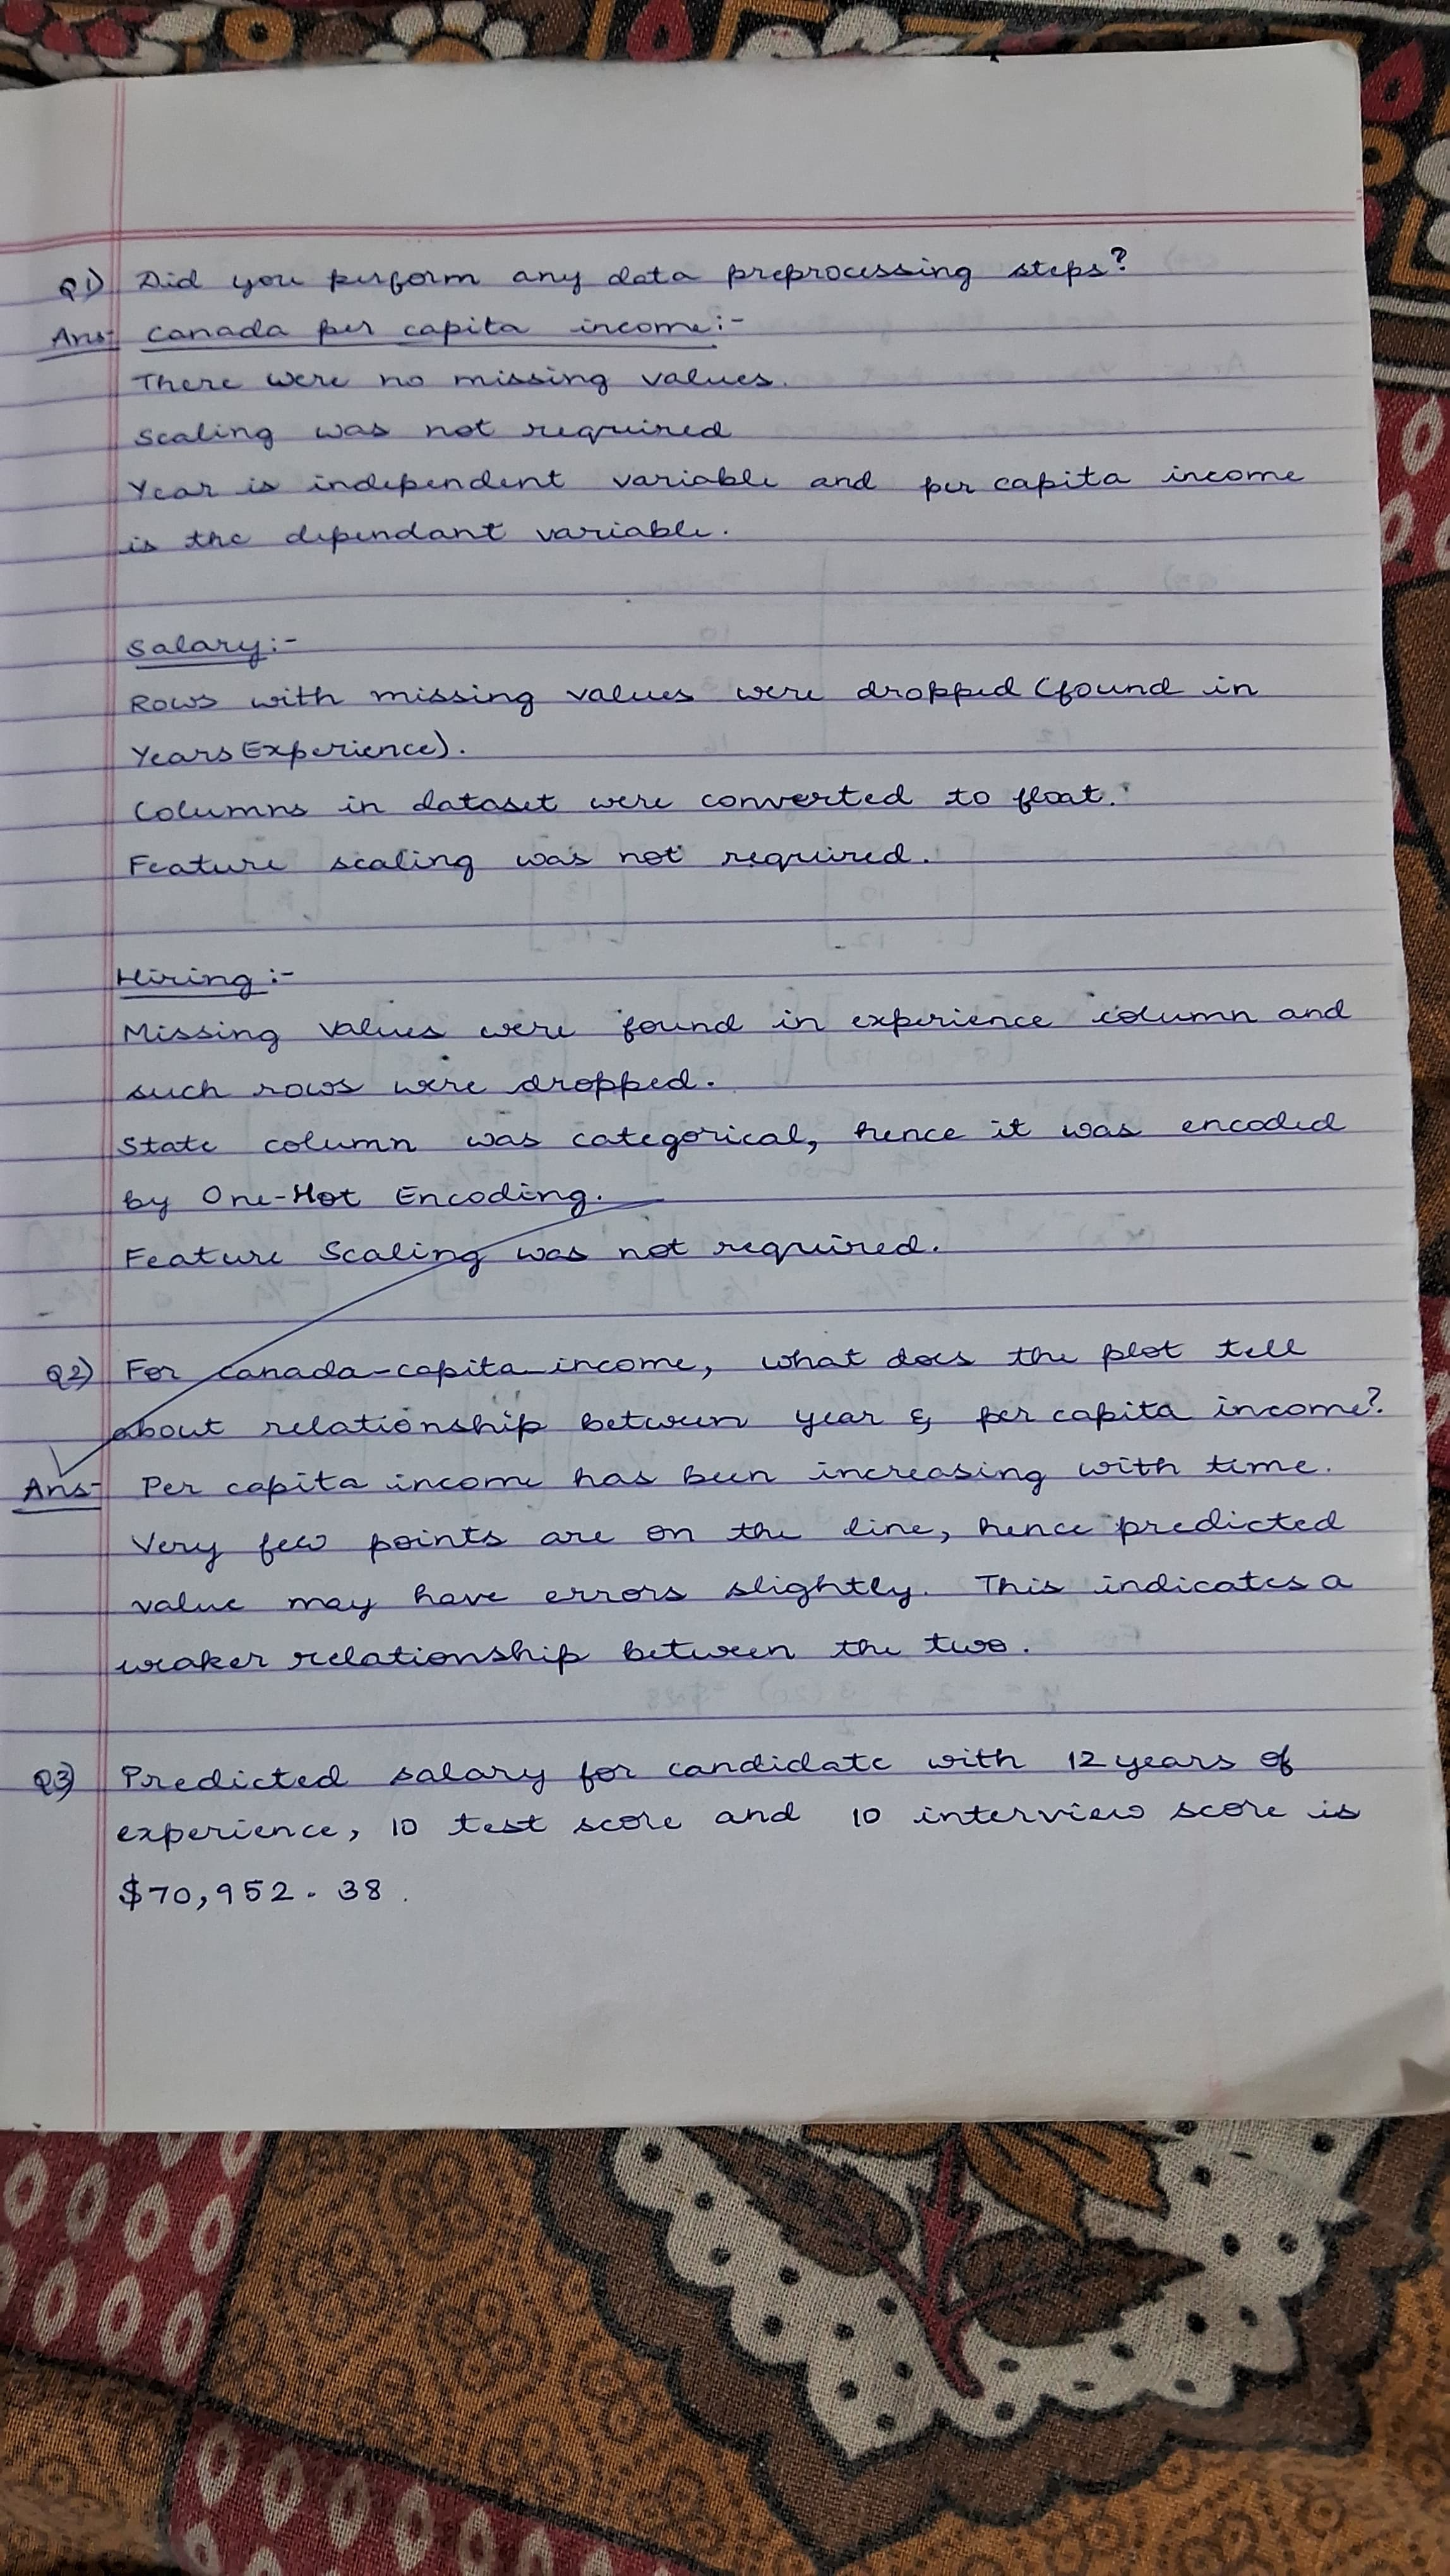 Q1) Did you perform any data preprocessing steps?
Ans- Canada per capita income:-
There were no missing values.
Scaling was not required
Year is independent variable and per capita income
is the dependant variable.
Salary:-
Rows with missing values were dropped (found in
YearsExperience).
Columns in dataset were converted to float.
Feature scaling was not required.
Hiring:-
Missing values were found in experience column and
such rows were dropped.
State column was categorical, hence it was encoded
by One-Hot Encoding.
Feature Scaling was not required.
Q2) For canada-capita-income, what does the plot tell
about relationship between year & per capita income?
Ans- Per capita income has been increasing with time.
Very few points are on the line, hence predicted
value may have errors slightly. This indicates a
weaker relationship between the two.
Q3) Predicted salary for candidate with 12 years of
experience, 10 test score and 10 interview score is
$70,952.38.